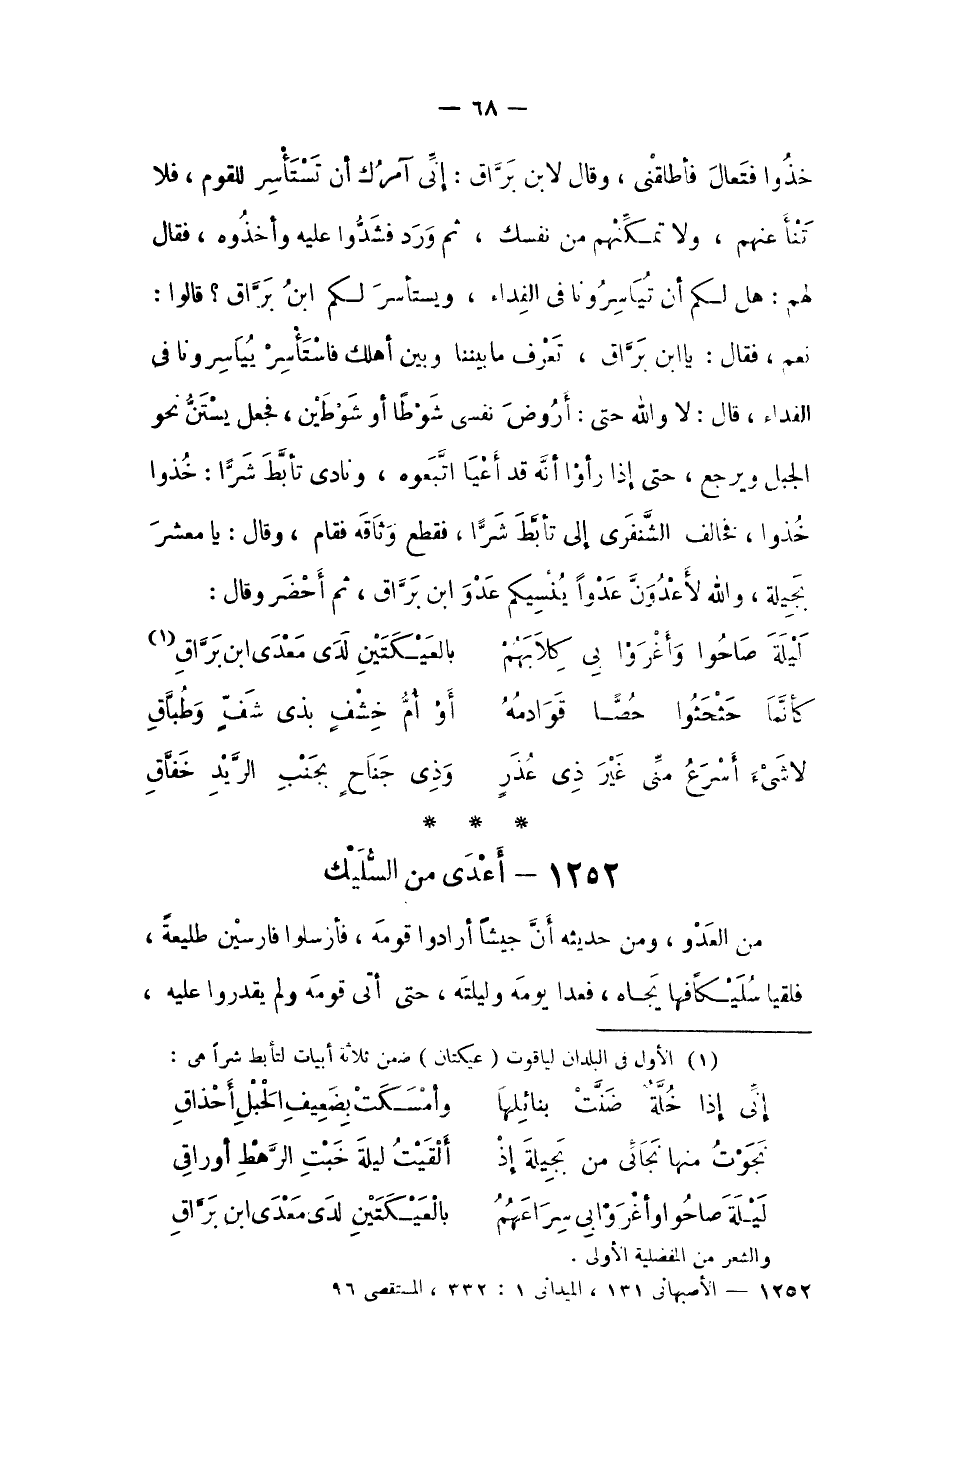 — ٦٨ —
خذُوا فتَعالَ فأطلقْنى ، وقال لابن بَرَّاق : إنِّى آمرُك أن تَسْتَأْسِر للقوم ، فلا
تَنْأَ عنهم ، ولا تمكِّنْهم من نفسك ، ثم وَرَد فشَدُّوا عليه وأخذُوه ، فقال
لهم : هل لكم أن تُيَاسِرُونا فى الفِداء ، ويستأسرَ لكم ابنُ بَرَّاق ؟ قالوا :
نعم ، فقال : ياابن بَرَّاق ، تَعْرف مابيننا وبين أهلك فاسْتَأْسِرْ يُيَاسِرونا فى
الفداء ، قال : لا والله حتى : أَرُوضَ نفسى شَوْطًا أو شَوْطَيْن ، فجعل يسْتَنُّ نحو
الجبل ويرجع ، حتى إذا رأوْا أنَّه قد أَعْيَا اتَّبَعوه ، ونادى تأبَّطَ شَرًّا : خُذوا
خُذوا ، فخالف الشَّنفَرَى إلى تأبَّطَ شَرًّا ، فقطع وَثَاقَه فقام ، وقال : يا معشرَ
بَجِيلة ، والله لأَعْدُوَنَّ عَدْواً يُنْسِيكم عَدْوَ ابن بَرَّاق ، ثم أَحْضَر وقال :
لَيْلَةَ صَاحُوا وَأَغْرَوْا بِى كِلاَبَهُمْ بالعَيْكَتَيْنِ لَدَى مَعْدَى ابن بَرَّاقِ (١)
كأَنَّمَا حَثْحَثُوا حُصًّا قَوَادِمُهُ أَوْ أُمُّ خِشْفٍ بذى شَثٍّ وَطُبَّاقِ
لاشَىْءَ أَسْرَعُ مِنِّى غَيْرَ ذِى عُذَرٍ وَذِى جَنَاحٍ بِجَنْبِ الرَّيْدِ خَفَّاقِ
* * *
١٢٥٢ – أَعْدَى من السُّلَيْك
من العَدْو ، ومن حديثه أَنَّ جيشاً أرادوا قومَه ، فأرْسلوا فارسيْن طليعةً ،
فلقيا سُلَيْكاً فهايَجاه ، فعدا يومَه وليلتَه ، حتى أتَى قومَه ولم يقدروا عليه ،
(١) الأول فى البلدان لياقوت ( عيكتان ) ضمن ثلاثة أبيات لتأبط شراً هى :
إنِّى إذا خُلَّةٌ ضَنَّتْ بنائِلِهَا وأمْسَكَتْ بِضَعِيفِ الحَبْلِ أَحْذَاقِ
نَجَوْتُ منها نَجَائى من بَجِيلةَ إذْ أَلْقَيْتُ ليلةَ خَبْتِ الرَّهْطِ أوراقِى
لَيْلَةَ صَاحُوا وأغْرَوْا بِى سِرَاعَهُمُ بالْعَيْكَتَيْنِ لدَى مَعْدَى ابن بَرَّاقِ
والشعر من المفضلية الأولى .
١٢٥٢ — الأصبهانى ١٣١ ، الميدانى ١ : ٣٣٢ ، المستقصى ٩٦